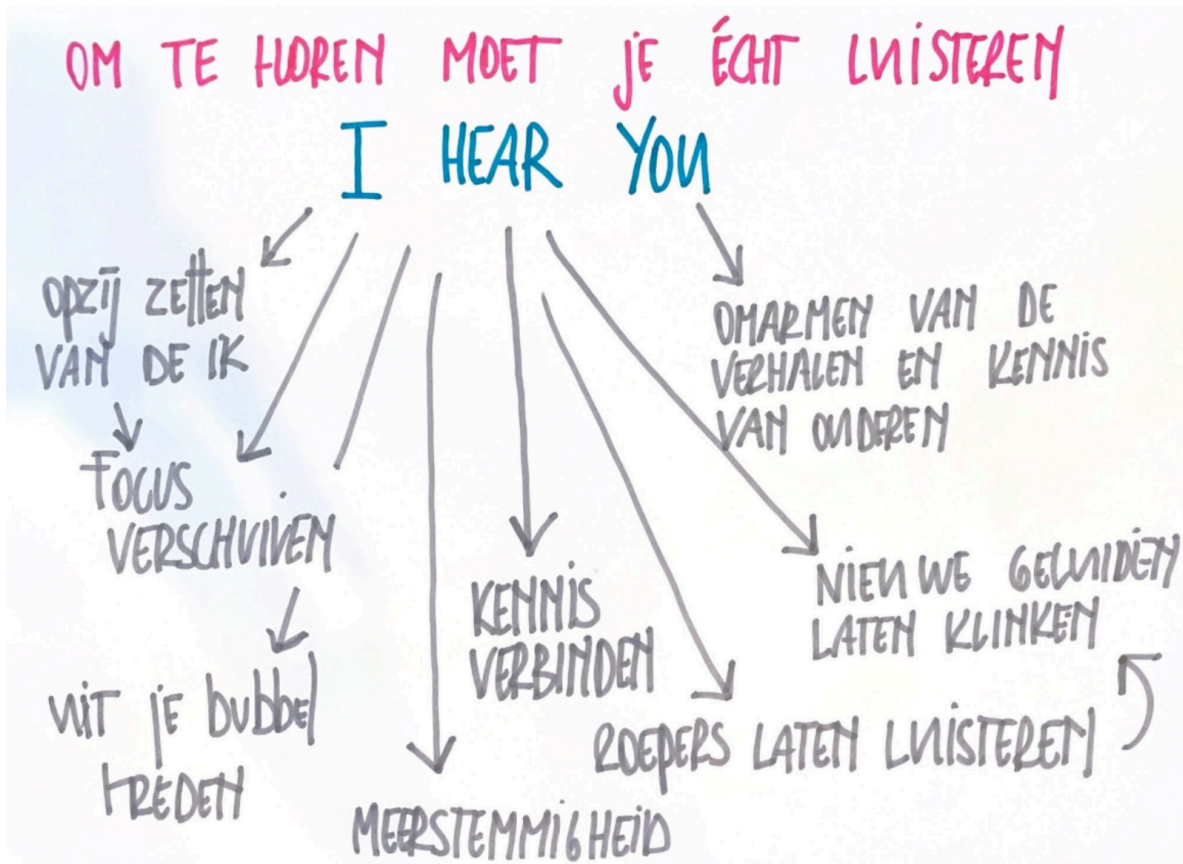 OM TE HOREN MOET JE ÉCHT LUISTEREN
I HEAR YOU
OPZIJ ZETTEN
VAN DE IK
FOCUS
VERSCHUIVEN
UIT JE BUBBEL
TREDEN
MEERSTEMMIGHEID
KENNIS
VERBINDEN
ROEPERS LATEN LUISTEREN
NIEUWE GELUIDEN
LATEN KLINKEN
OMARMEN VAN DE
VERHALEN EN KENNIS
VAN OUDEREN